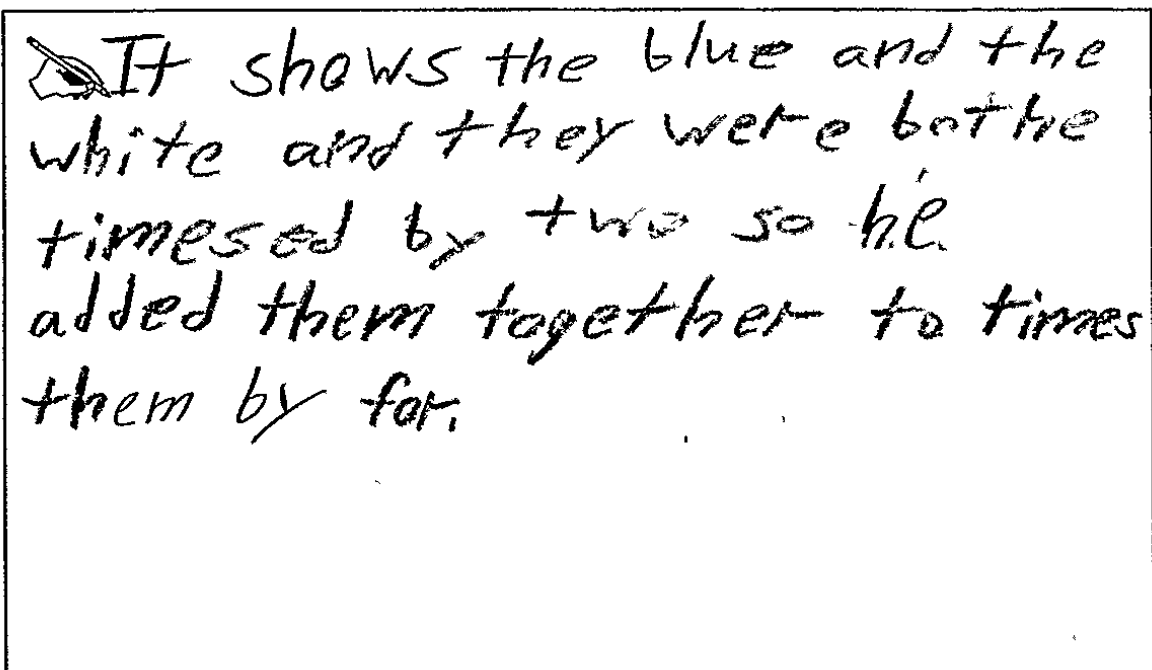 It shows the blue and the
white and they were bothe
timesed by two so he
added them together to times
them by for.